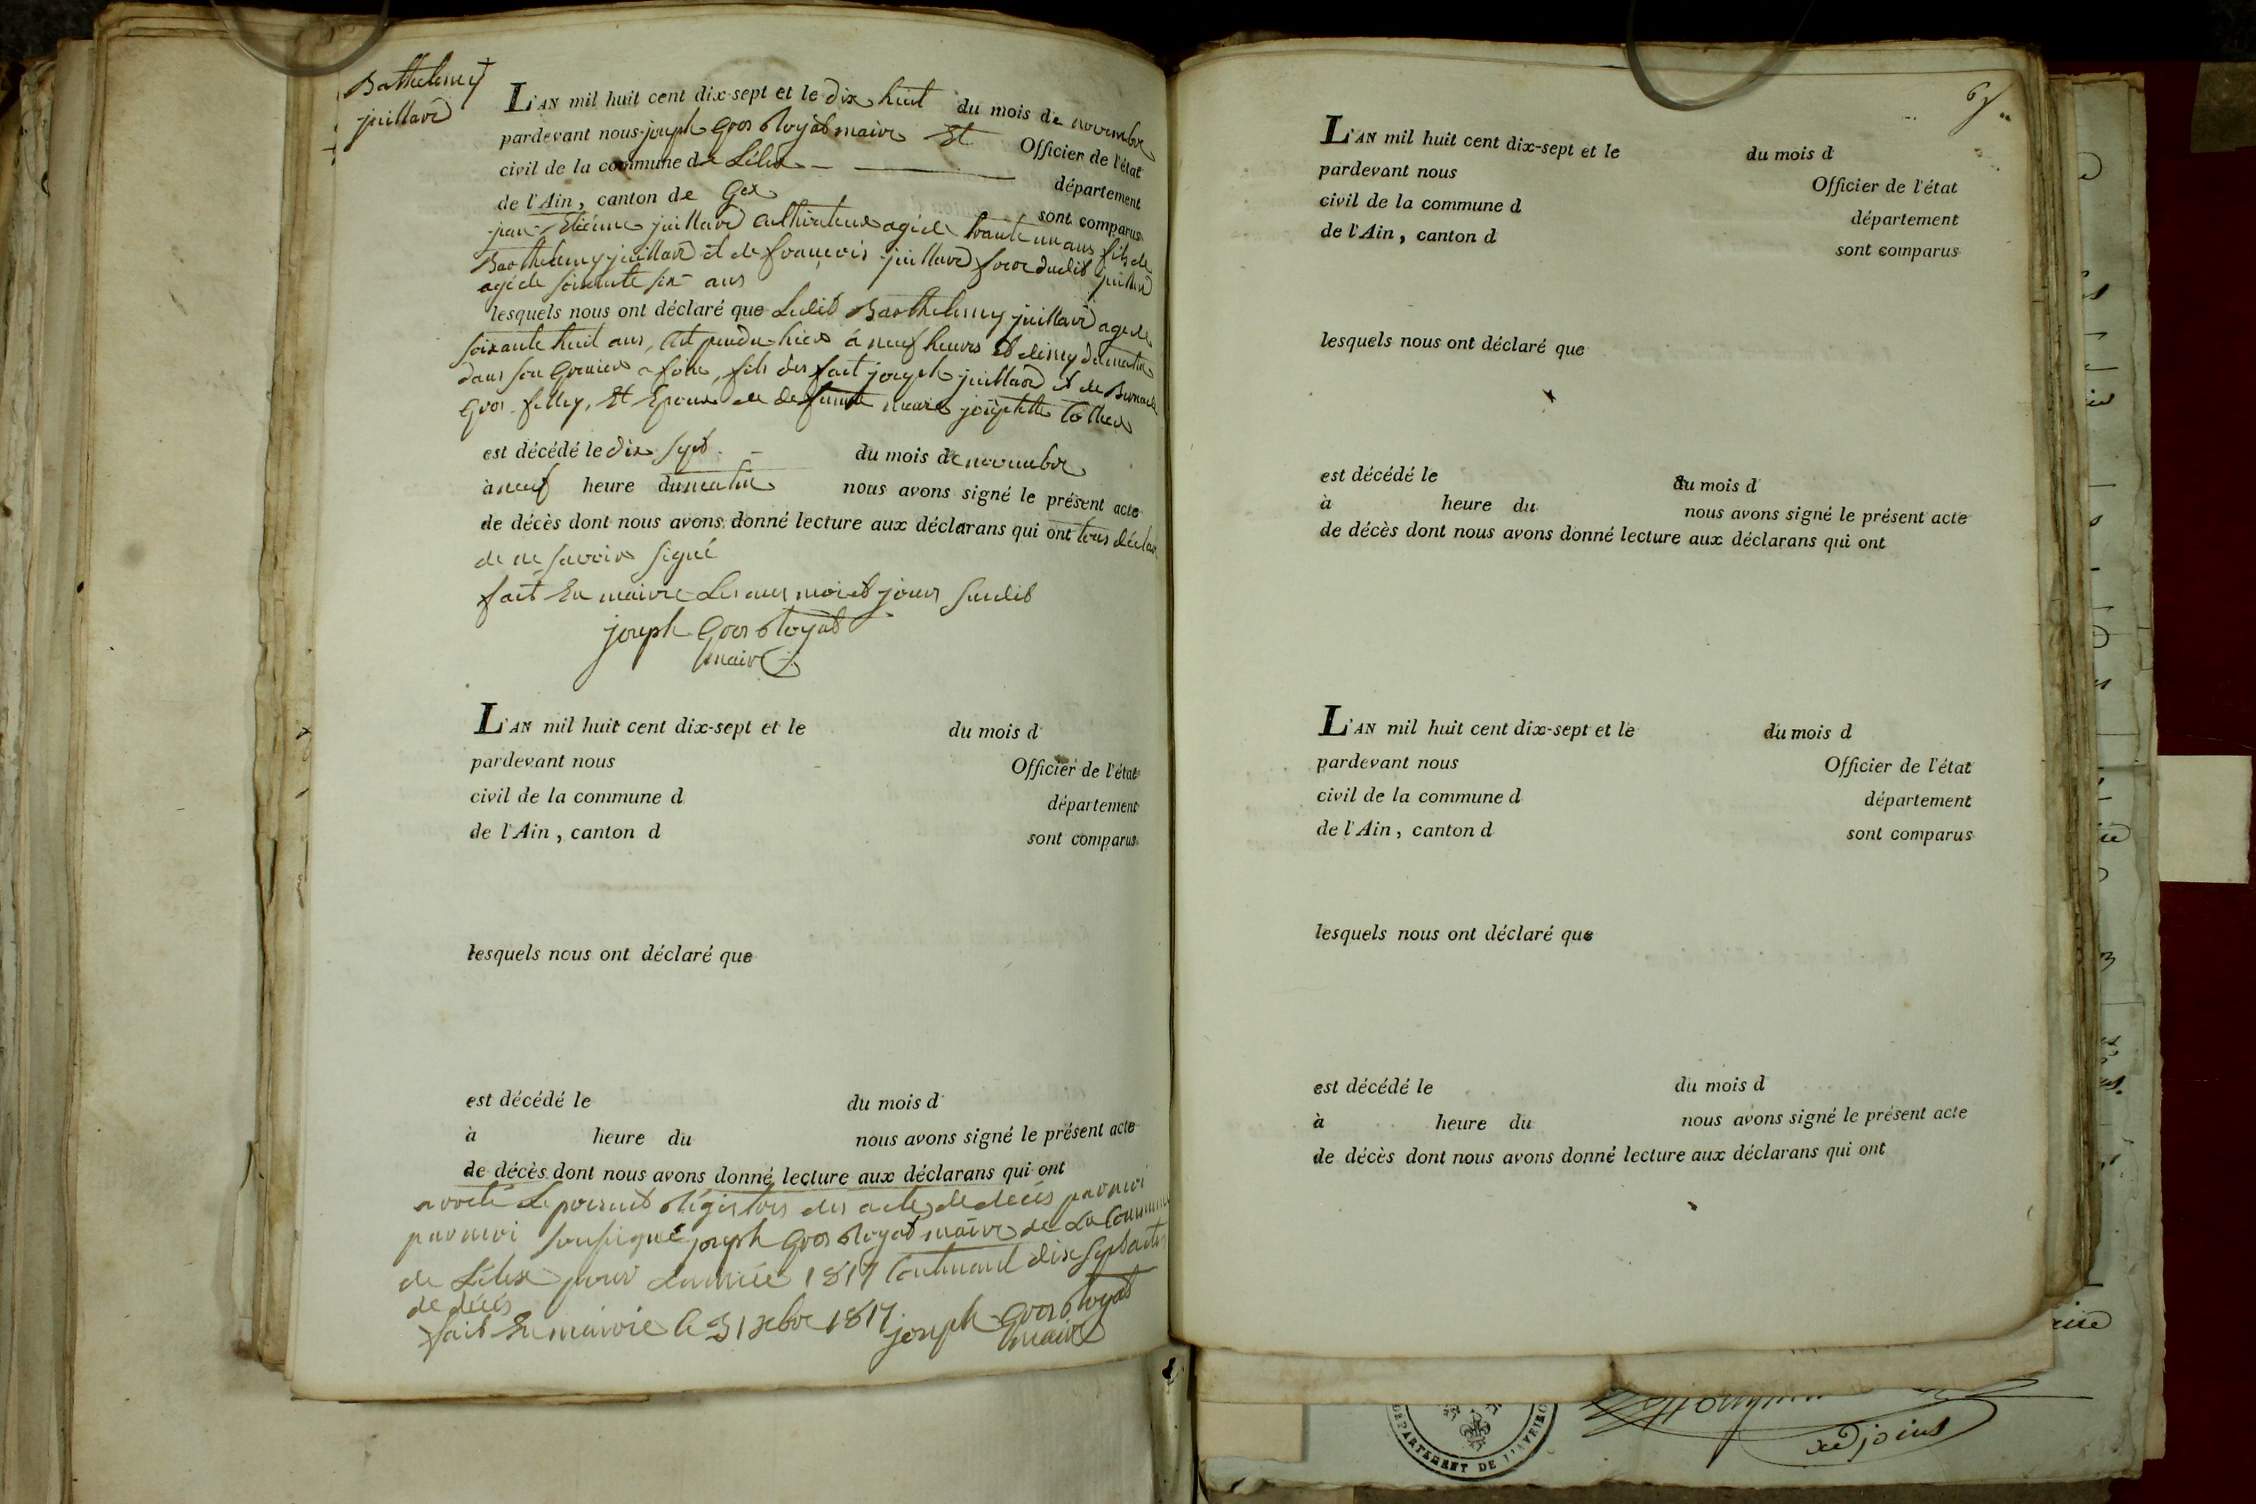 Barthelemy
juillard
L'AN mil huit cent dix-sept et le dix huit du mois de novembre
pardevant nous joseph Gros Royat maire Et Officier de l'état
civil de la commune de Lélex département
de l'Ain, canton de Gex sont comparus
jean Etiénne juillard Cultivateur agé de trante un ans fils de
Barthelemy juillard et de françois juillard frere dudit juillard
agé de soixante six ans
lesquels nous ont déclaré que Ledit Barthelemy juillard agé de
soixante huit ans, hier à neuf heures et demy du matin
dans son Grenier a foin, fils des fait joseph juillard et de
Gros filley, Et Epoux de defunte marie josephtte
est décédé le dix sept du mois de novembre
à neuf heure du matin nous avons signé le présent acte
de décès dont nous avons donné lecture aux déclarans qui ont tous déclaré
de ne savoir signé
fait En mairie Les ans mois et jours susdit
joseph Gros Royat
maire
L'AN mil huit cent dix-sept et le du mois d
pardevant nous Officier de l'état
civil de la commune d département
de l'Ain, canton d sont comparus
lesquels nous ont déclaré que
est décédé le du mois d
à heure du nous avons signé le présent acte
de décès dont nous avons donné lecture aux déclarans qui ont
arreté Le present Régistres des actes de decés par moi
par moi sousigné joseph Gros Royat maire de La Commune
de Lélex pour Lannée 1817 Contenant dix sept actes
de décés
fait En mairie le 31 xbre 1817 joseph Gros Royat
maire
L'AN mil huit cent dix-sept et le du mois d
pardevant nous Officier de l'état
civil de la commune d département
de l'Ain, canton d sont comparus
lesquels nous ont déclaré que
est décédé le du mois d
à heure du nous avons signé le présent acte
de décès dont nous avons donné lecture aux déclarans qui ont
L'AN mil huit cent dix-sept et le du mois d
pardevant nous Officier de l'état
civil de la commune d département
de l'Ain, canton d sont comparus
lesquels nous ont déclaré que
est décédé le du mois d
à heure du nous avons signé le présent acte
de décès dont nous avons donné lecture aux déclarans qui ont
DEPARTEMENT DE
adjoint